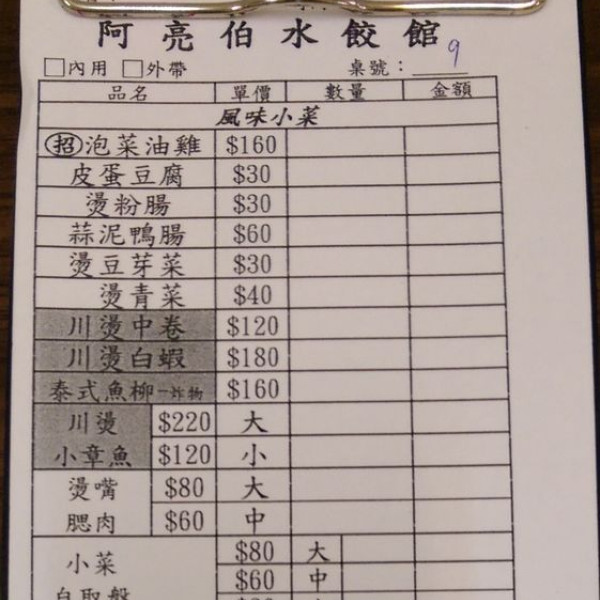 阿亮伯水餃館
內用 外帶 桌號： 9
品名 單價 數量 金額
風味小菜
招泡菜油雞 $160
皮蛋豆腐 $30
燙粉腸 $30
蒜泥鴨腸 $60
燙豆芽菜 $30
燙青菜 $40
川燙中卷 $120
川燙白蝦 $180
泰式魚柳－炸物 $160
川燙 $220 大
小章魚 $120 小
燙嘴 $80 大
腮肉 $60 中
小菜 $80 大
自取盤 $60 中